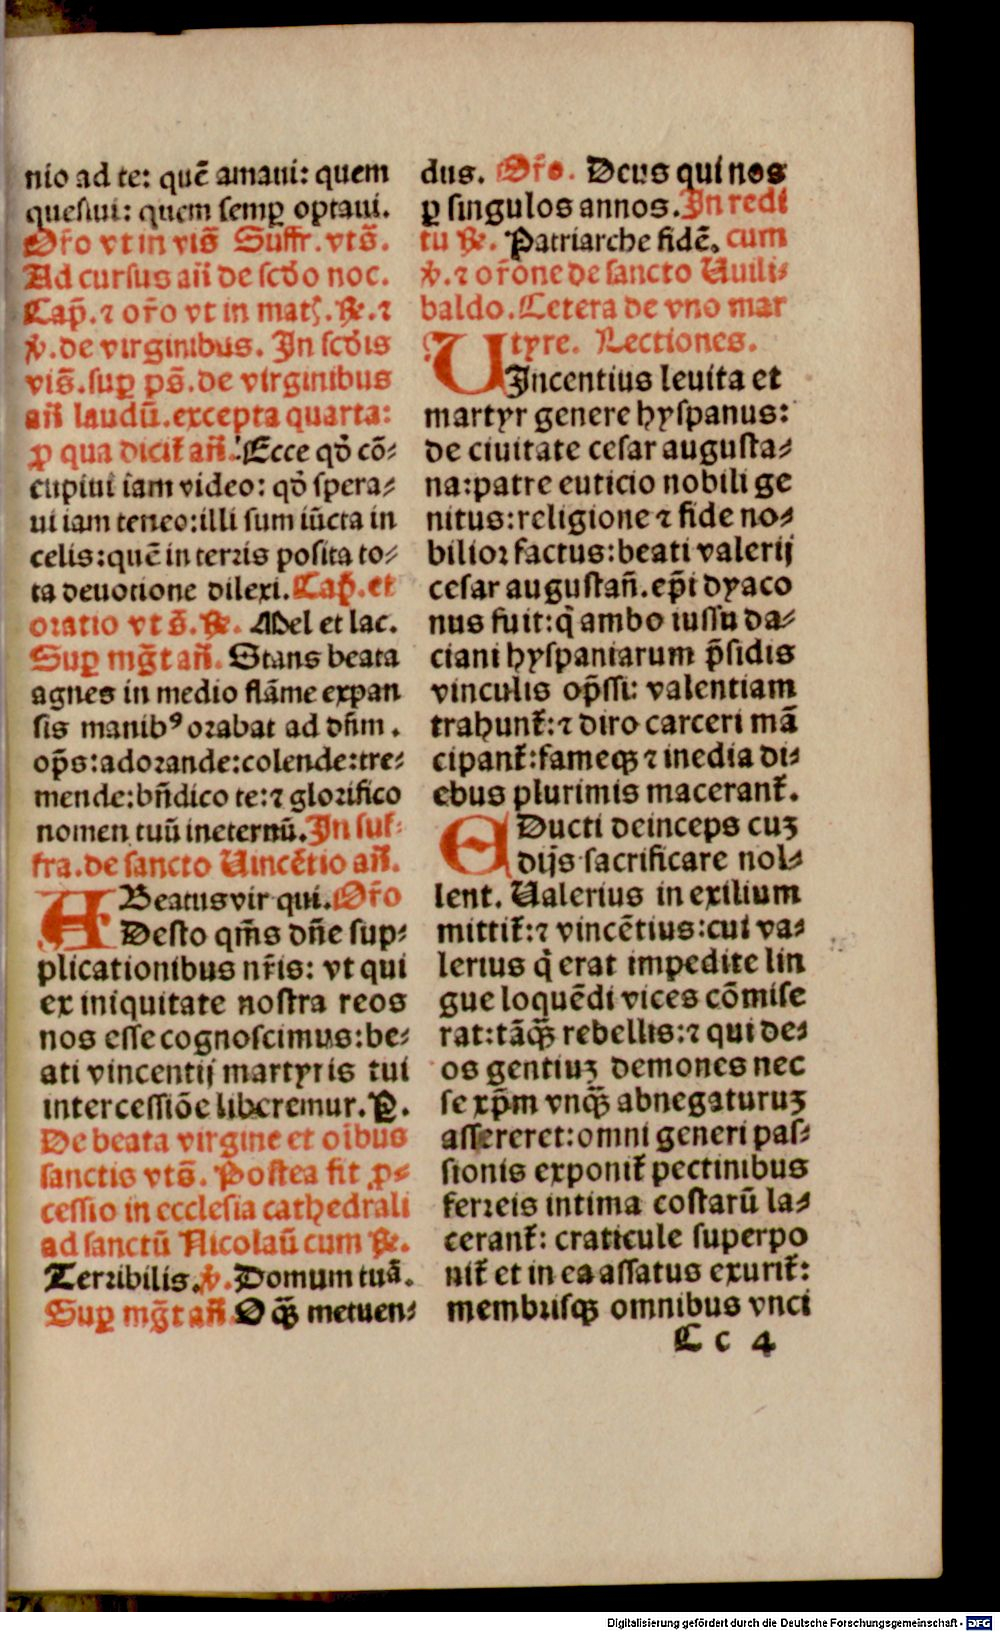 nio ad te: quē amaui: quem
quesiui: quem semꝑ optaui.
Or̄o vt in vis̄ Suffr. vts̄.
Ad cursus añ de scd̄o noc.
Cap̄. ⁊ or̄o vt in mat͛. ℟. ⁊
℣. de virginibus. In scd̄is
vis̄. suꝑ ps̄. de virginibus
añ laudū. excepta quarta:
ꝓ qua dicit᷑ añ. Ecce qd̄ cō-
cupiui iam video: qd̄ spera-
ui iam teneo: illi sum iūcta in
celis: quē in terris posita to-
ta deuotione dilexi. Cap̄. et
oratio vt s̄. ℟. Mel et lac.
Suꝑ mg̅t añ. Stans beata
agnes in medio flāme expan
sis manibꝰ orabat ad dn̄m.
op̄s: adorande: colende: tre-
mende: bn̄dico te: ⁊ glorifico
nomen tuū ineternū. In suf-
fra. de sancto Uincētio añ.
Beatus vir qui. Or̄o
ADesto qm̄s dn̄e sup-
plicationibus nr̄is: vt qui
ex iniquitate nostra reos
nos esse cognoscimus: be-
ati vincentij martyris tui
intercessiōe liberemur. P.
De beata virgine et oībus
sanctis vts̄. Postea fit ꝓ-
cessio in ecclesia cathedrali
ad sanctū Nicolaū cum ℟.
Terribilis. ℣. Domum tuā.
Suꝑ mg̅t añ. O q̄ꝫ metuen-
dus. Or̄o. Deus qui nos
ꝑ singulos annos. In redi
tu ℟. Patriarche fidē. cum
℣. ⁊ or̄one de sancto Uuili-
baldo. Cetera de vno mar
tyre. Lectiones.
UIncentius leuita et
martyr genere hyspanus:
de ciuitate cesar augusta-
na: patre euticio nobili ge
nitus: religione ⁊ fide no-
bilior factus: beati valerij
cesar augustañ. ep̄i dyaco
nus fuit: q̇ ambo iussu da-
ciani hyspaniarum p̄sidis
vinculis op̄ssi: valentiam
trahunt᷑: ⁊ diro carceri mā
cipant᷑: fameqꝫ ⁊ inedia di-
ebus plurimis macerant᷑.
EDucti deinceps cuꝫ
dijs sacrificare nol-
lent. Ualerius in exilium
mittit᷑: ⁊ vincētius: cui va-
lerius q̇ erat impedite lin
gue loquēdi vices cōmise
rat: tāq̄ꝫ rebellis: ⁊ qui de-
os gentiuꝫ demones nec
se xp̄m vnq̄ꝫ abnegaturuꝫ
assereret: omni generi pas-
sionis exponit᷑ pectinibus
ferreis intima costarū la-
cerant᷑: craticule superpo
nit᷑ et in ea assatus exurit᷑:
membrisqꝫ omnibus vnci
C c 4
Digitalisierung gefördert durch die Deutsche Forschungsgemeinschaft - DFG